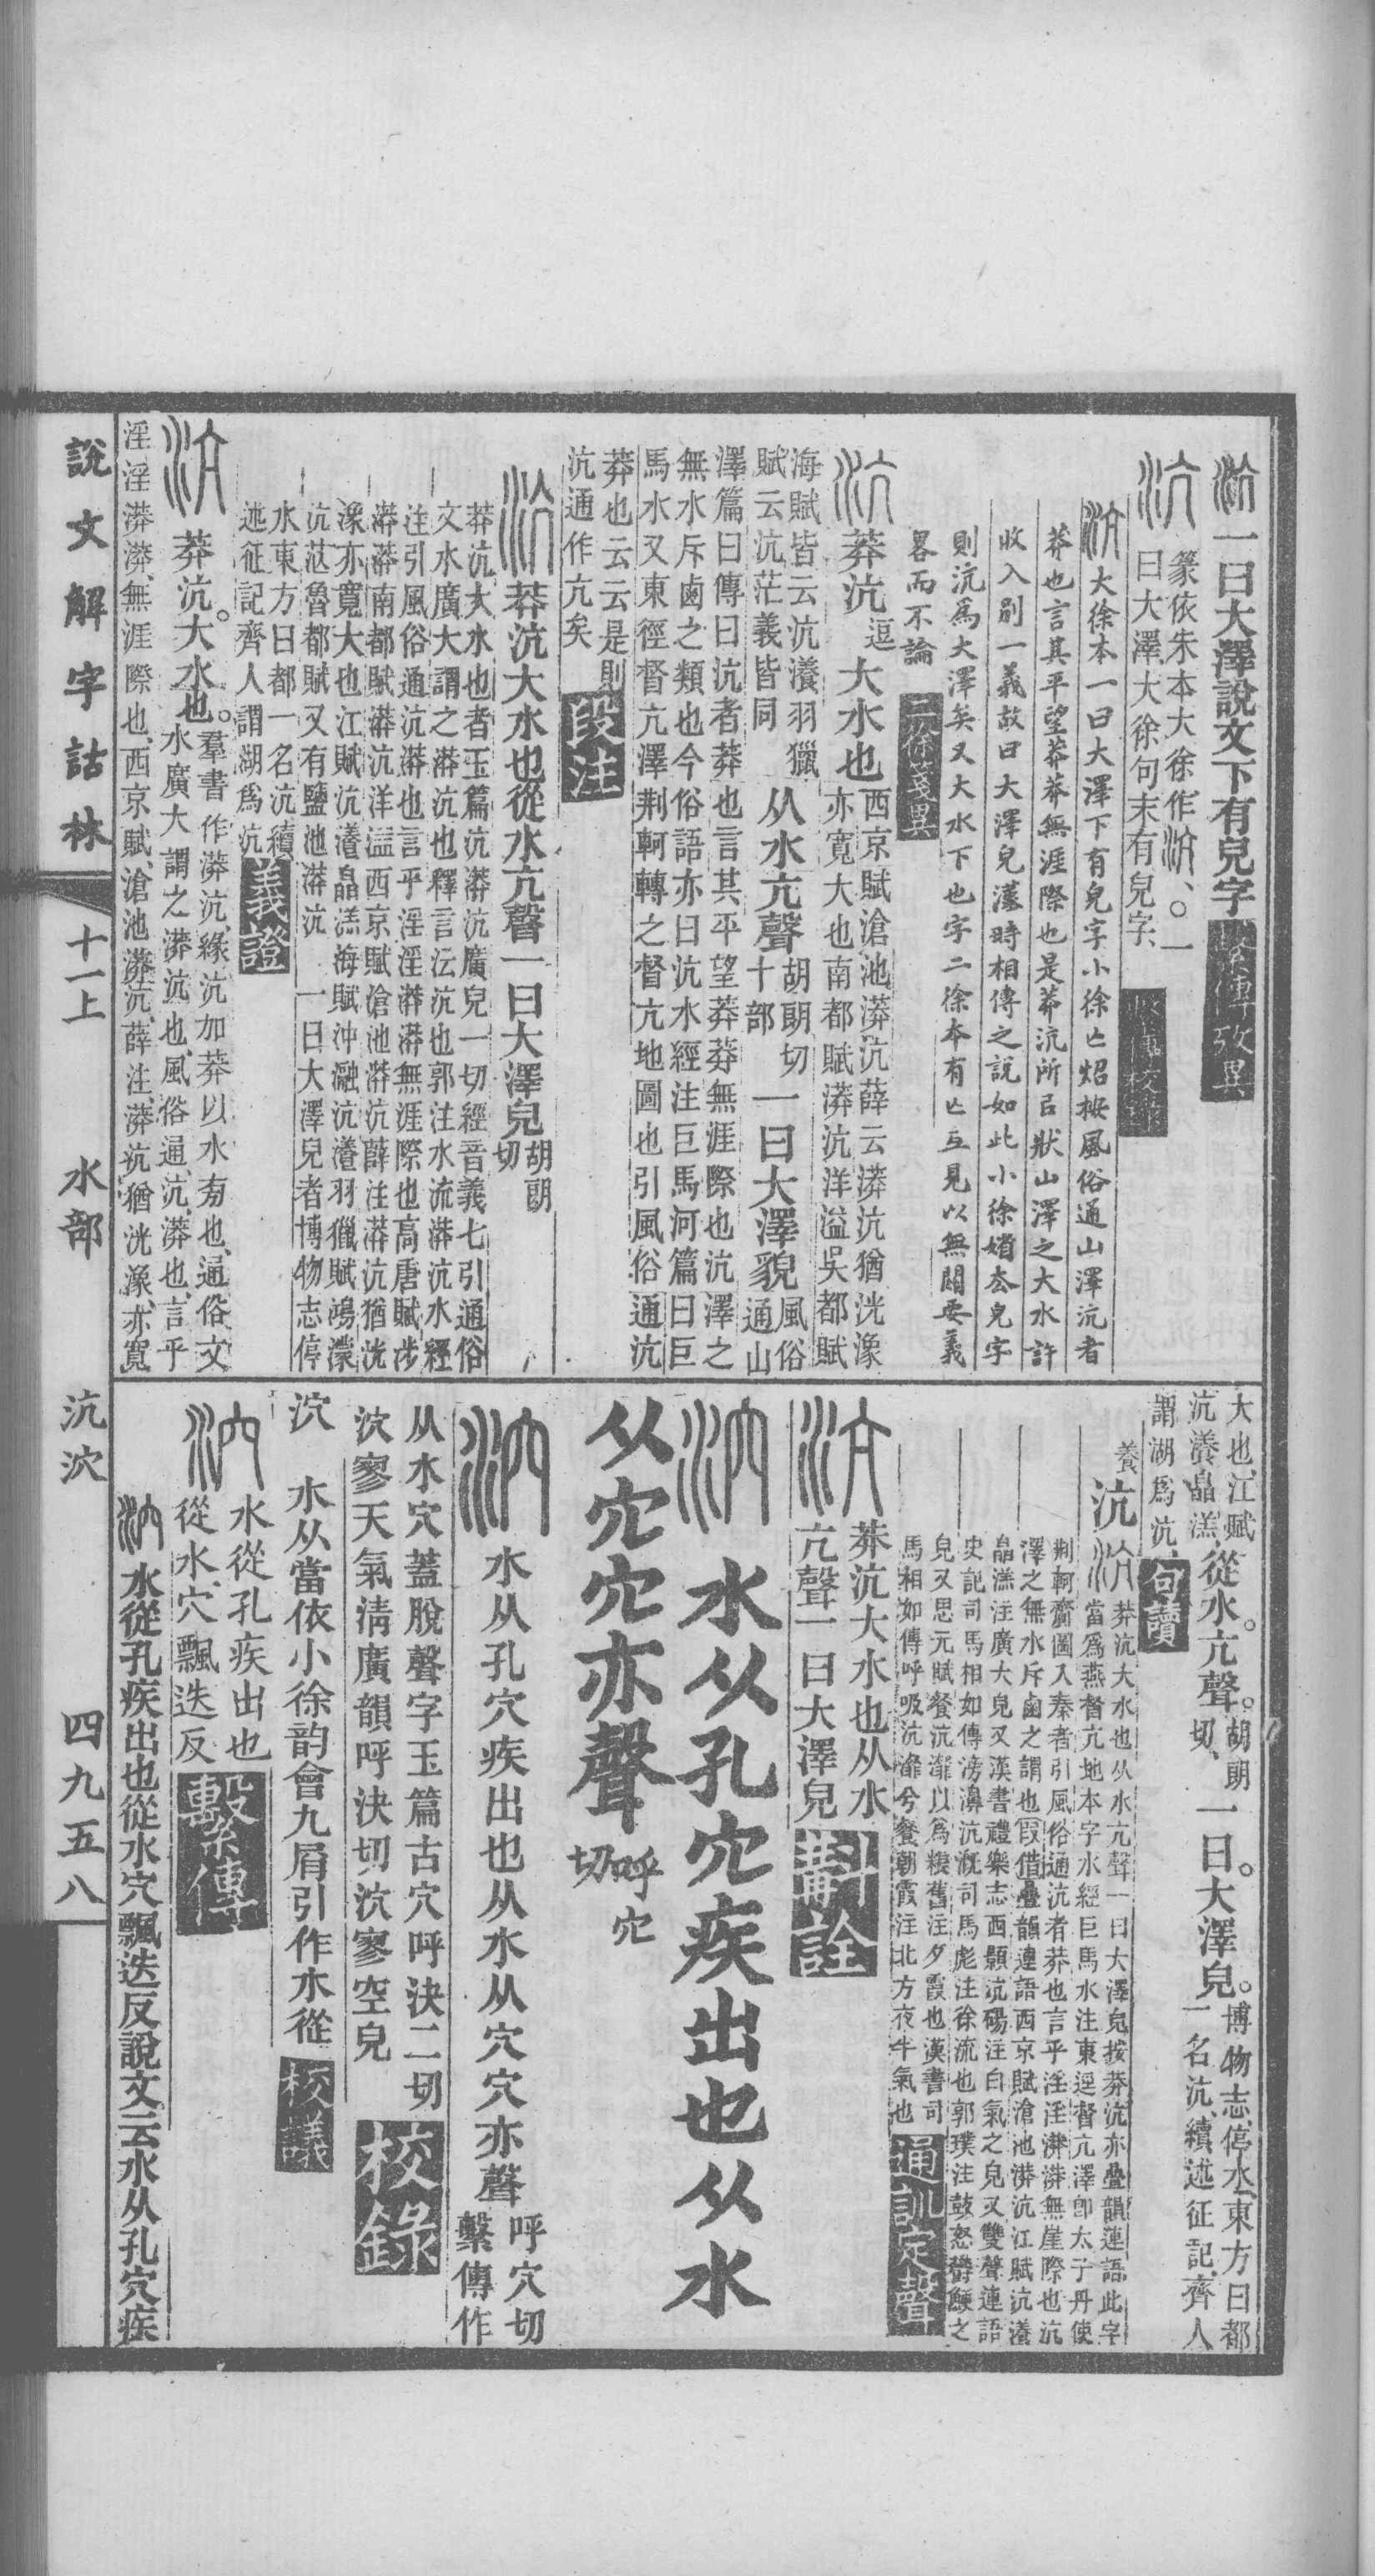 沆一曰大澤說文下有皃字 繫傳攷異
沆篆依朱本大徐作沆、一
曰大澤大徐句末有皃字、
沆大徐本一曰大澤下有皃字小徐亾炤按風俗通山澤沆者
莽也言其平望莽莽無涯際也是莽沆所㠯狀山澤之大水許
收入別一義故曰大澤皃漢時相傳之說如此小徐婧厺皃字
則沆爲大澤矣又大水下也字二徐本有亾互見以無關要義
畧而不論 二徐箋異
沆莽沆逗大水也西京賦滄池漭沆薛云漭沆猶洸潒
亦寬大也南都賦漭沆洋溢吳都賦
海賦皆云沆瀁羽獵
賦云沆茫義皆同从水亢聲胡朗切十部一曰大澤貌風俗通山
澤篇曰傳曰沆者莽也言其平望莽莽無涯際也沆澤之
無水斥鹵之類也今俗語亦曰沆水經注巨馬河篇曰巨
馬水又東徑督亢澤荆軻轉之督亢地圖也引風俗通沆
莽也云云是則
沆通作亢矣 段注
沆莽沆大水也從水亢聲一曰大澤皃胡朗切
莽沆大水也者玉篇沆漭沆廣皃一切經音義七引通俗
文水廣大謂之漭沆也釋言沄沆也郭注水流漭沆水經
注引風俗通沆漭也言乎淫淫漭漭無涯際也高唐賦涉
漭漭南都賦漭沆洋溢西京賦滄池漭沆薛注漭沆猶洸
潒亦寬大也江賦沆瀁皛溔海賦沖瀜沆瀁羽獵賦鴻濛
沆茫魯都賦又有鹽池漭沆 一曰大澤皃者博物志停
水東方曰都一名沆續
述征記齊人謂湖爲沆 義證
沆莽沆。大水也。羣書作漭沆、緣沆加莽以水㫄也、通俗文
水廣大謂之漭沆也、風俗通、沆、漭也、言乎
淫淫漭漭、無涯際也、西京賦、滄池漭沆、薛注、漭沆猶洸潒、亦寬
大也、江賦
沆瀁皛溔、從水。亢聲。胡朗切、一曰。大澤皃。博物志、停水、東方曰都
一名沆、續述征記、齊人
謂湖爲沆、 句讀
養沆沆莽沆大水也从水亢聲一曰大澤皃按莽沆亦疊韻連語此字
當爲燕督亢地本字水經巨馬水注東逕督亢澤卽太子丹使
荆軻齎圖入秦者引風俗通沆者莽也言乎淫淫漭漭無崖際也沆
澤之無水斥鹵之謂也叚借疊韻連語西京賦滄池漭沆江賦沆瀁
皛溔注廣大皃又漢書禮樂志西顥沆碭注白氣之皃又雙聲連語
史記司馬相如傳滂濞沆溉司馬彪注徐流也郭璞注鼓怒鬱鯁之
皃又思元賦餐沆瀣以爲糧舊注夕霞也漢書司
馬相如傳呼吸沆瀣兮餐朝霞注北方夜半氣也 通訓定聲
沆莽沆大水也从水
亢聲一曰大澤皃 斠詮
泬 水从孔穴疾出也从水
从穴穴亦聲呼穴切
泬 水从孔穴疾出也从水从穴穴亦聲呼穴切
繫傳作
从水穴蓋脫聲字玉篇古穴呼決二切
泬寥天氣清廣韻呼決切泬寥空皃 校錄
泬 水从當依小徐韵會九屑引作水從 校議
泬水從孔疾出也
從水、穴飄迭反 繫傳
泬水從孔疾出也從水穴飄迭反說文云水从孔穴疾
說文解字詁林 十一上 水部 沆泬 四九五八